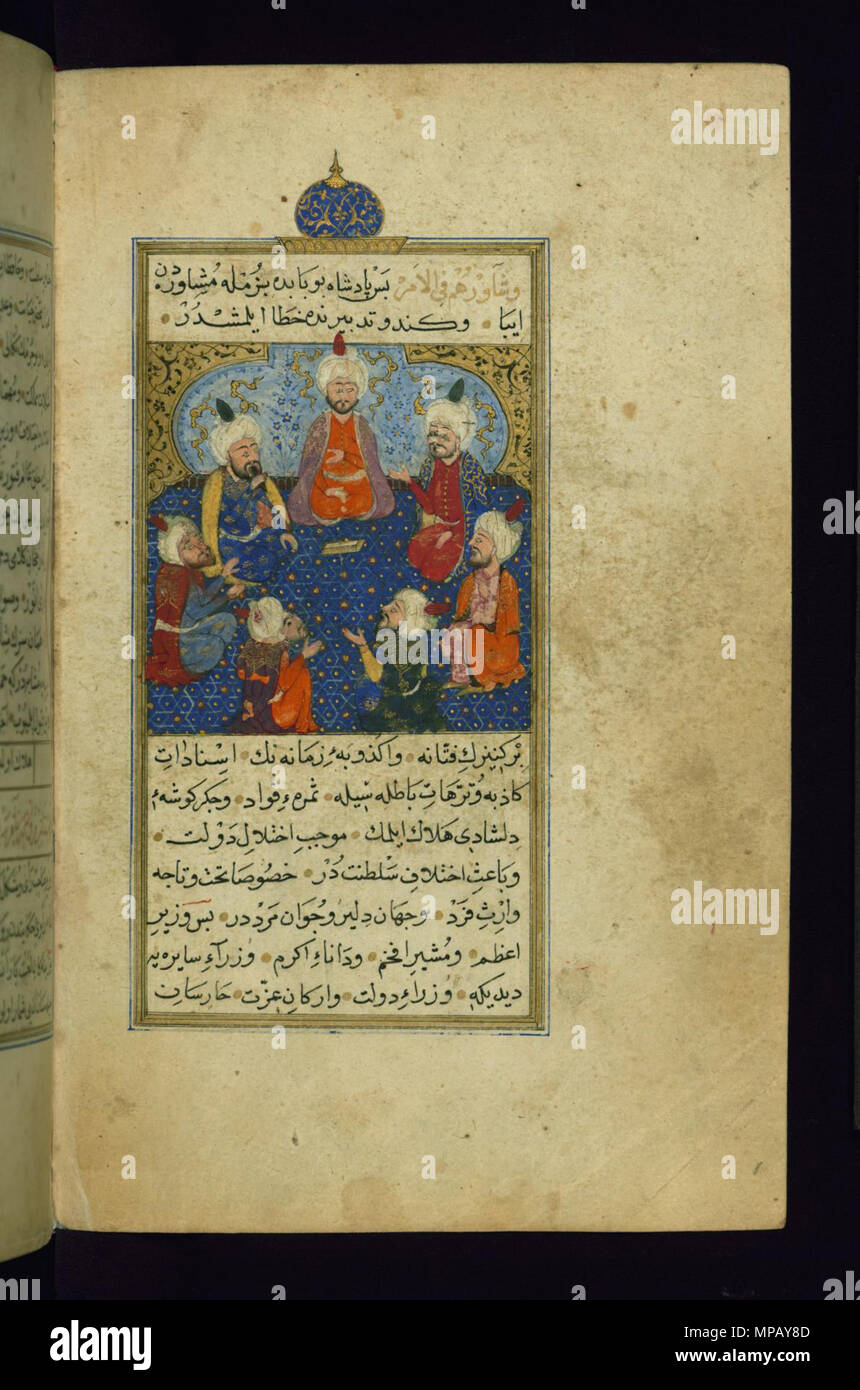 وشاورهم في الأمر بس پادشاه بو بابده بزمله مشاوردن
ایبا وکندو تدبیرنده خطا ایلمشدر
برکنیزك فتانه واکذوبهٔ زمانه نك اسنادات
کاذبه وترهات باطله سیله ثمرهٔ فواد وجکرکوشهٔ
دلشادی هلاك ایلمك موجب اختلال دولت
وباعث اختلاف سلطنت در خصوصا تخت وتاجه
وارث فرد وجهان دلیر وجوان مرد در بس وزیر
اعظم ومشیر افخم ودانای اکرم وزرآء سایره یه
دیدیکه وزرآء دولت وارکان عزت حارسان
alamy
Image ID: MPAY8D
www.alamy.com